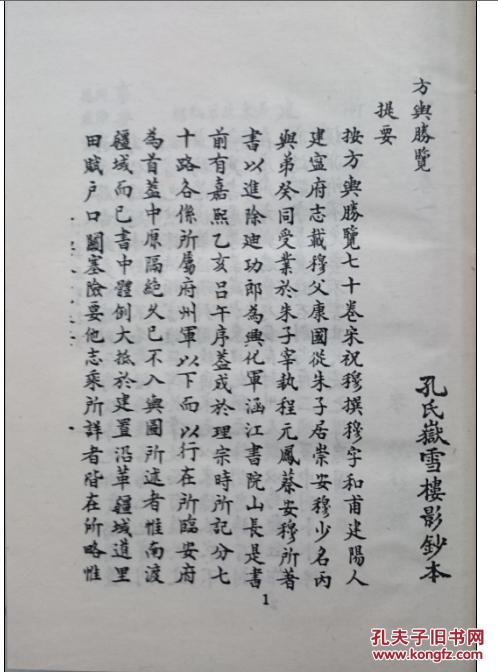 方輿勝覽
提要
按方輿勝覽七十卷宋祝穆撰穆字和甫建陽人
建寧府志載穆父康國從朱子居崇安穆少名丙
與弟癸同受業於朱子宰執程元鳳蔡安穆所著
書以進除迪功郎為興化軍涵江書院山長是書
前有嘉熙乙亥呂午序葢成於理宗時所記分七
十路各係所屬府州軍以下而以行在所臨安府
為首葢中原隔絶久已不入輿圖所述者惟南渡
疆域而已書中體例大抵於建置沿革疆域道里
田賦戶口關塞險要他志乘所詳者皆在所略惟
孔氏嶽雪樓影鈔本
1
孔夫子旧书网
www.kongfz.com